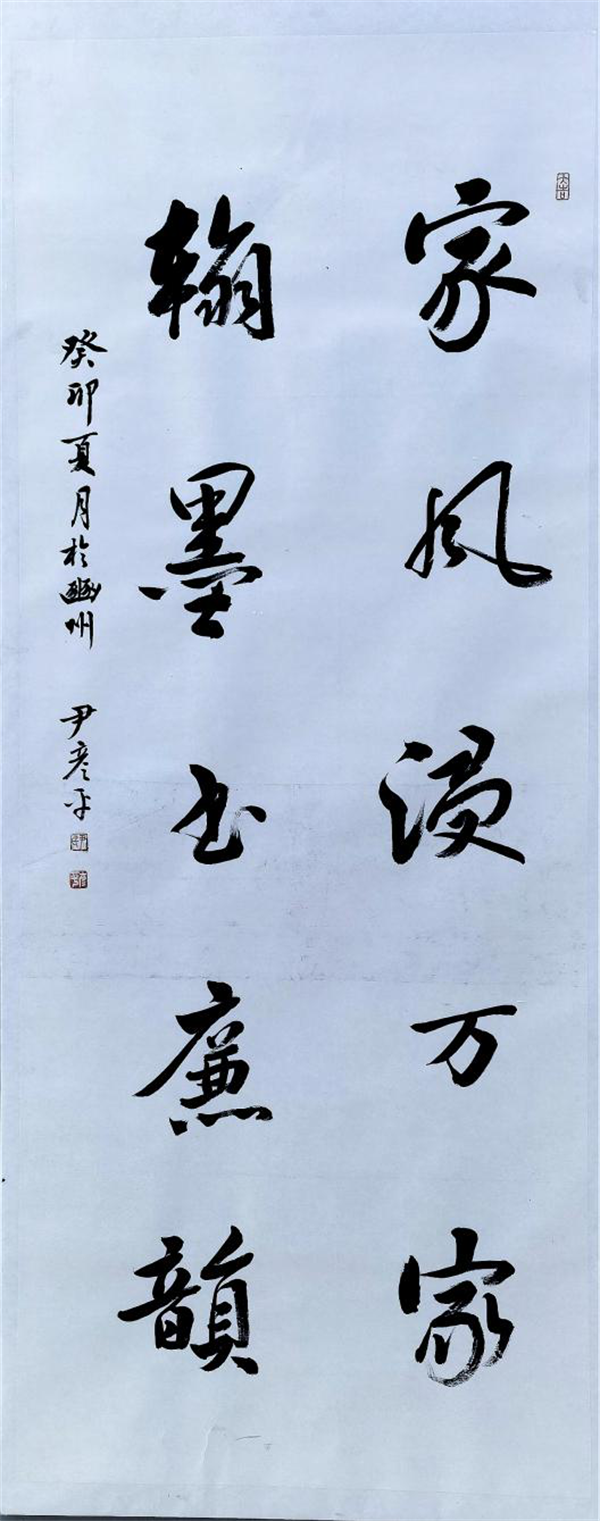 家风浸万家
翰墨书廉韻
癸卯夏月於豳州 尹彦平